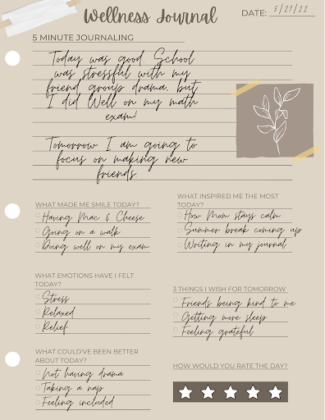 Wellness Journal
DATE: 5/27/22
5 MINUTE JOURNALING
Today was good. School
was stressful with my
friend group drama, but
I did Well on my math
exam!
Tomorrow I am going to
focus on making new
friends.
WHAT MADE ME SMILE TODAY?
Having Mac & Cheese
Going on a walk
Doing well on my exam
WHAT INSPIRED ME THE MOST
TODAY?
How Mom stays calm
Summer break coming up
Writing in my journal
WHAT EMOTIONS HAVE I FELT
TODAY?
Stress
Relaxed
Relief
3 THINGS I WISH FOR TOMORROW
Friends being kind to me
Getting more sleep
Feeling grateful
WHAT COULD'VE BEEN BETTER
ABOUT TODAY?
Not having drama
Taking a nap
Feeling included
HOW WOULD YOU RATE THE DAY?